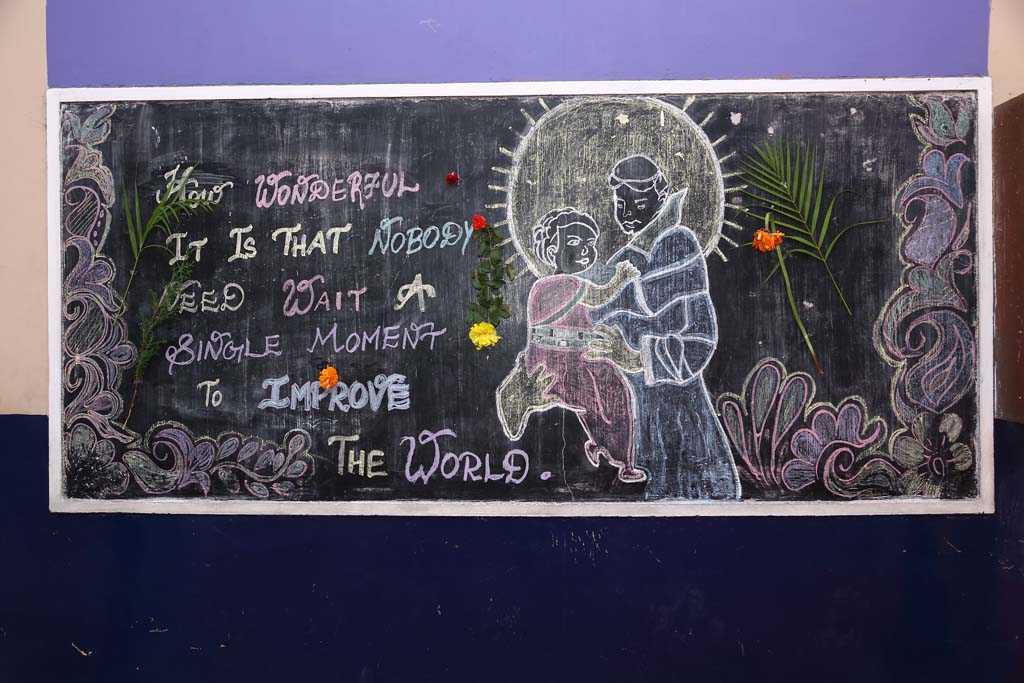 How WONDERFUL
IT IS THAT NOBODY
NEED WAIT A
SINGLE MOMENT
TO IMPROVE
THE WORLD.